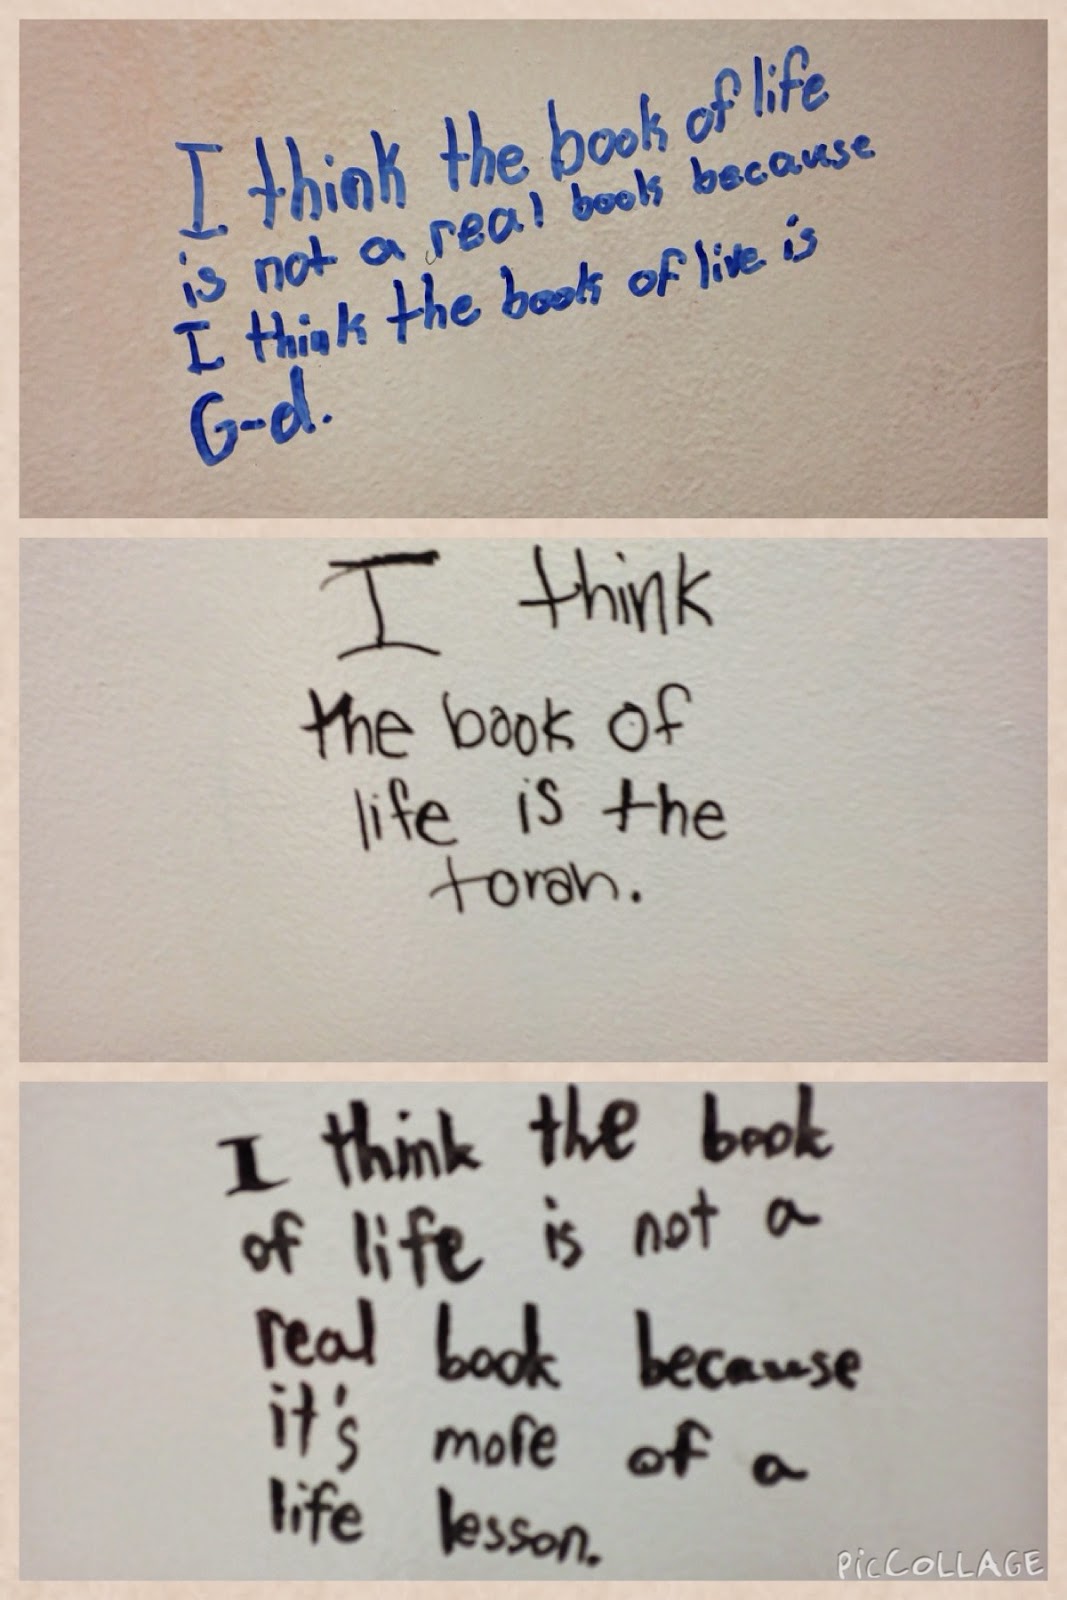 I think the book of life
is not a real book because
I think the book of live is
G-d.
I think
the book of
life is the
torah.
I think the book
of life is not a
real book because
it's more of a
life lesson.
PicCOLLAGE